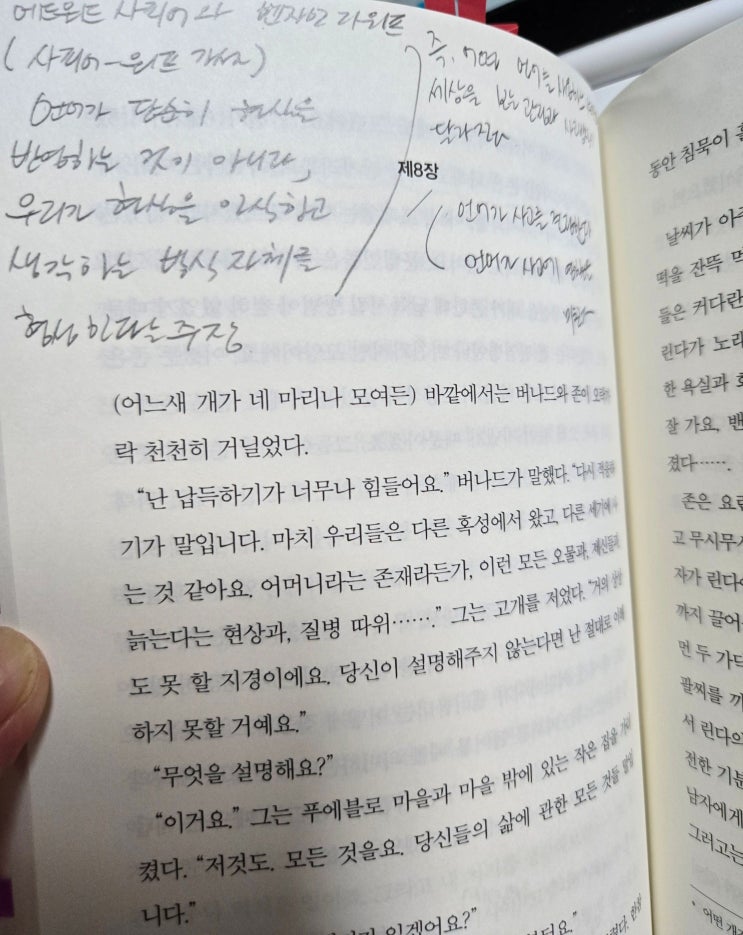 에드워드 사피어와 벤자민 리 워프
(사피어-워프 가설)
언어가 단순히 현상을
반영하는 것이 아니라,
우리가 현상을 인식하고
생각하는 방식 자체를
형성한다는 주장
즉, 어떤 언어를
세상을 보는 관점과
달라진다
제8장
언어가 사고를
언어가 사고에
(어느새 개가 네 마리나 모여든) 바깥에서는 버나드와 존이
락 천천히 거닐었다.
“난 납득하기가 너무나 힘들어요.” 버나드가 말했다. “다시
기가 말입니다. 마치 우리들은 다른 혹성에서 왔고, 다른 세기에
는 것 같아요. 어머니라는 존재라든가, 이런 모든 오물과,
늙는다는 현상과, 질병 따위…….” 그는 고개를 저었다. “거의 상상
도 못 할 지경이에요. 당신이 설명해주지 않는다면 난 절대로 이해
하지 못할 거예요.”
“무엇을 설명해요?”
“이거요.” 그는 푸에블로 마을과 마을 밖에 있는 작은 집을 가리
켰다. “저것도. 모든 것을요. 당신들의 삶에 관한 모든 것들
니다.”
있겠어요?”
동안 침묵이
날씨가 아주
떡을 잔뜩
들은 커다란
린다가 노래
한 욕실과
잘 가요,
졌다…….
존은
고 무시무시
자가 린다
까지 끌어
먼 두
팔찌를
서 린다의
전한 기분
남자에게
그러고는
* 어떤